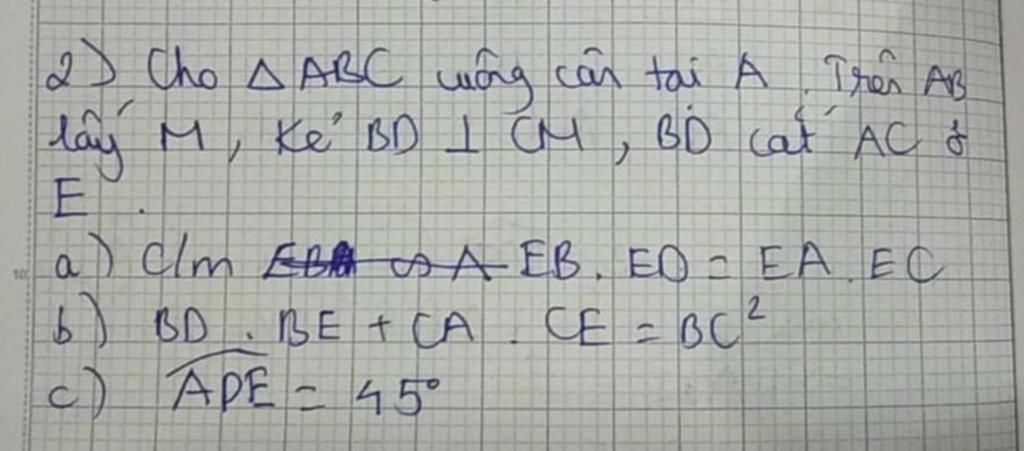 2) Cho △ ABC vuông cân tại A. Trên AB
lấy M, Kẻ BD ⊥ CM, BD cắt AC ở
E.
a) C/m EB. ED = EA. EC
b) BD. BE + CA. CE = BC²
c) ADE = 45°
10